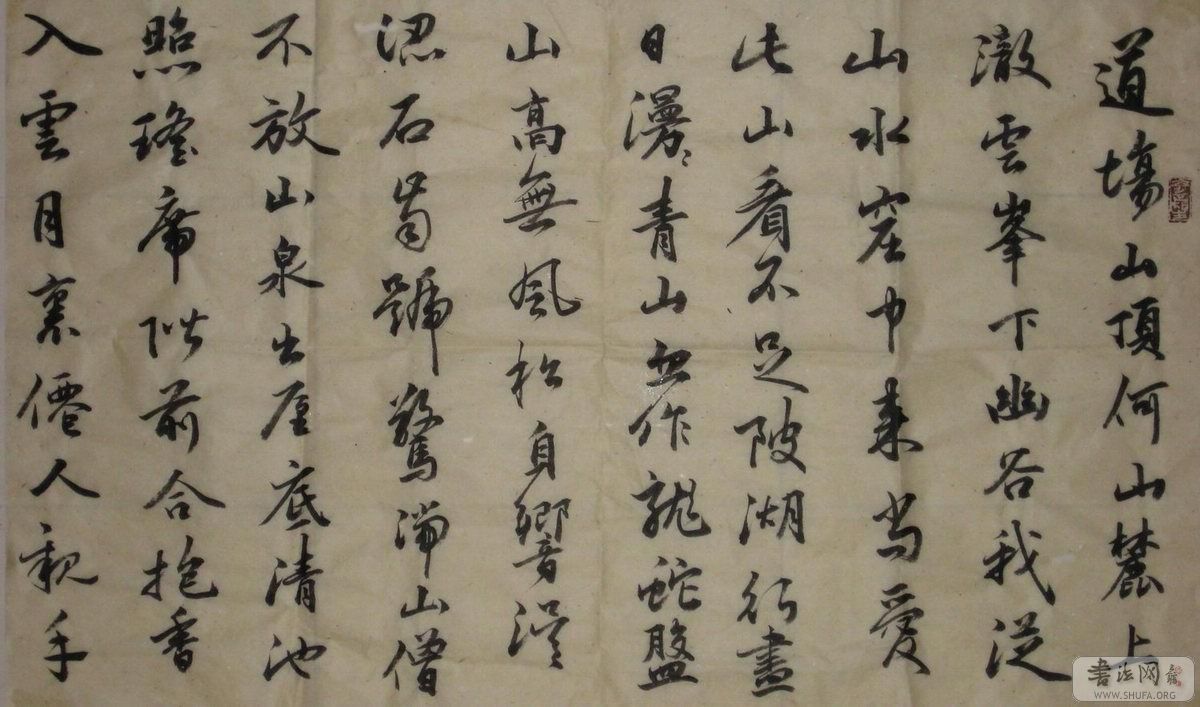 道場山頂何山麓上
澈雲峯下幽谷我從
山水窟中来尚愛
此山看不足陂湖行盡
白漫〻青山忽作龍蛇盤
山高無風松自響誤
認石齒號驚湍山僧
不放山泉出屋底清池
照瑤席階前合抱香
入雲月裏僊人親手
書法网
WWW.SHUFA.ORG